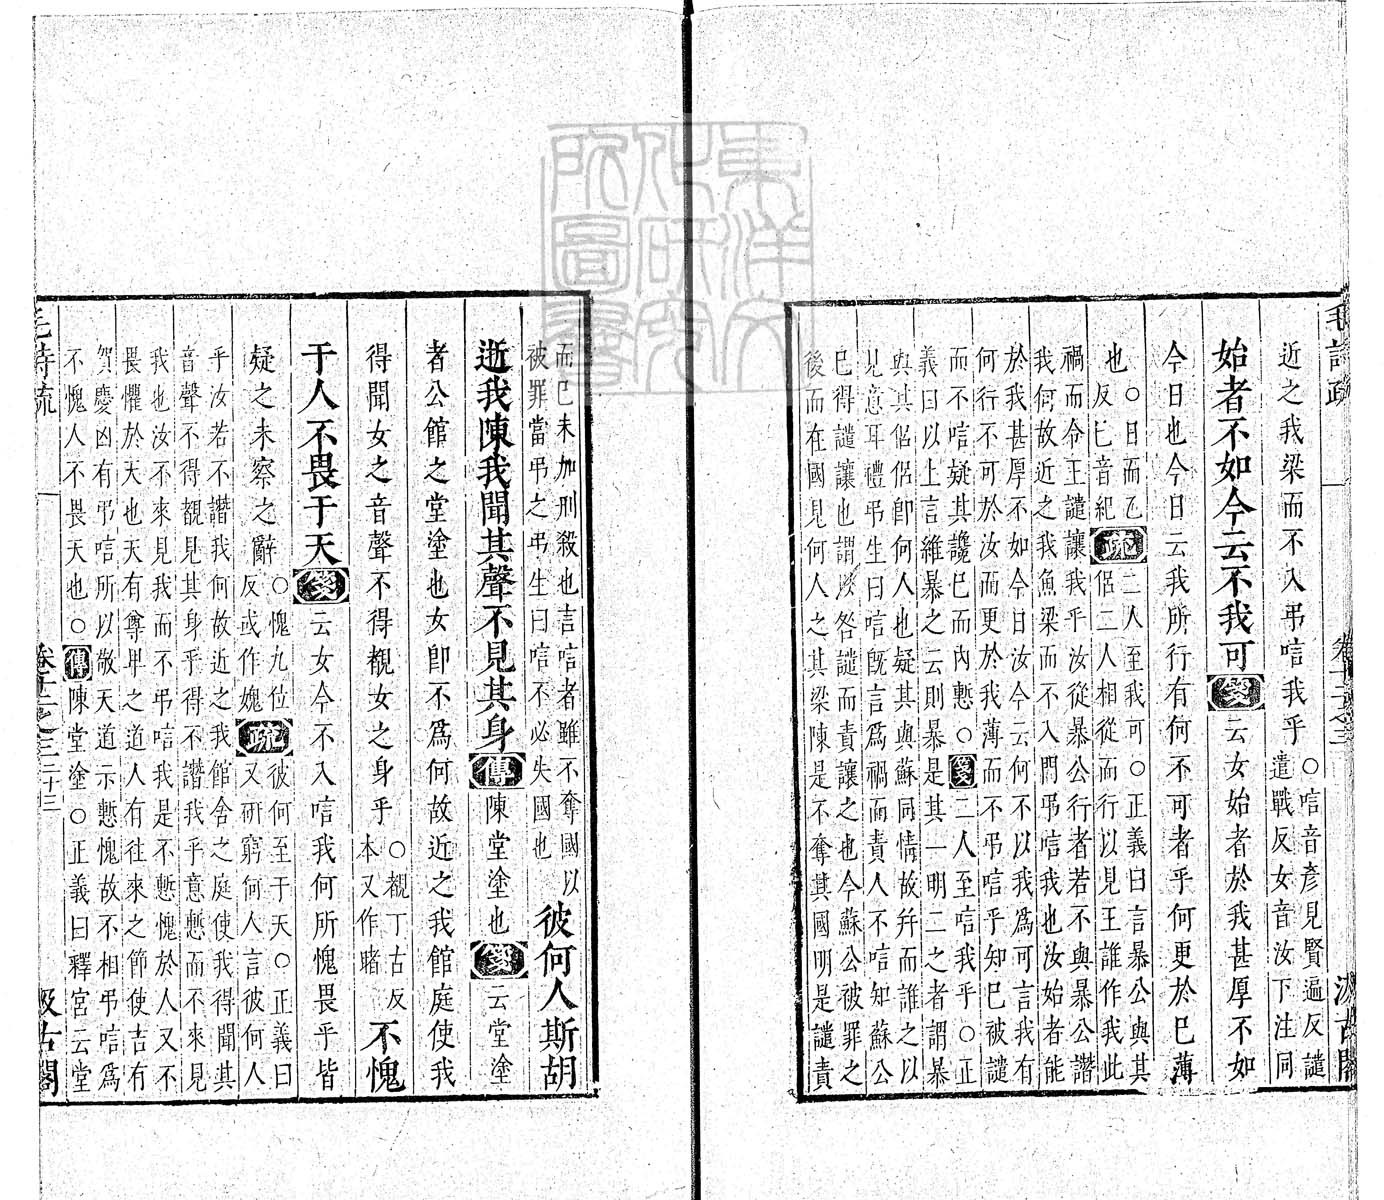 近之我梁而不入弔唁我乎○唁音彥見賢遍反譴
遣戰反女音汝下注同
始者不如今云不我可箋云女始者於我甚厚不如
今日也今日云我所行有何不可者乎何更於已薄
也○日而乙
反已音紀疏二人至我可○正義曰言暴公與其
侶二人相從而行以見王誰作我此
禍而令王譴讓我乎汝從暴公行者若不與暴公譖
我何故近之我魚梁而不入門弔唁我也汝始者能
於我甚厚不如今日汝今云何不以我爲可言我有
何行不可於汝而更於我薄而不弔唁乎知已被譴
而不唁疑其讒已而內慙○箋二人至唁我乎○正
義曰以上言維暴之云則暴是其一明二之者謂暴
與其侶侶卽何人也疑其與蘇同情故幷而誰之以
見意耳禮弔生曰唁旣言爲禍而責人不唁知蘇公
已得譴讓也謂以咎譴而責讓之也今蘇公被罪之
後而在國見何人之其梁陳是不奪其國明是譴責
而已未加刑殺也言唁者雖不奪國以
被罪當弔之弔生曰唁不必失國也彼何人斯胡
逝我陳我聞其聲不見其身傳陳堂塗也箋云堂塗
者公館之堂塗也女卽不爲何故近之我館庭使我
得聞女之音聲不得覩女之身乎○覩丁古反
本又作睹不愧
于人不畏于天箋云女今不入唁我何所愧畏乎皆
疑之未察之辭○愧九位
反或作媿疏彼何至于天○正義曰
又研窮何人言彼何人
乎汝若不譖我何故近之我館舍之庭使我得聞其
音聲不得覩見其身乎得不譖我乎意慙而不來見
我也汝不來見我而不弔唁我是不慙愧於人又不
畏懼於天也天有尊卑之道人有往來之節使吉有
賀慶凶有弔唁所以敬天道示慙愧故不相弔唁爲
不愧人不畏天也○傳陳堂塗○正義曰釋宮云堂
毛詩疏 卷十二之三 二十三 汲古閣